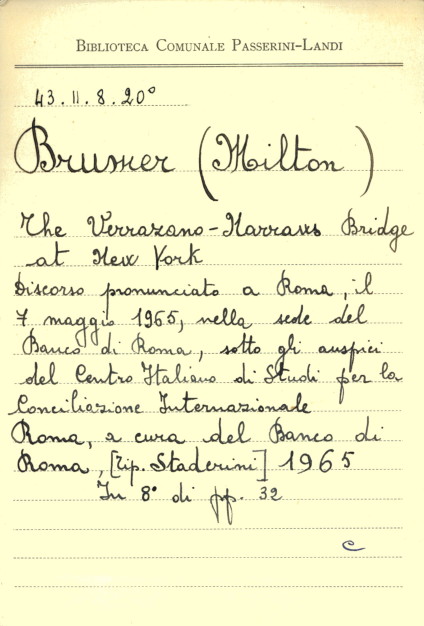 BIBLIOTECA COMUNALE PASSERINI-LANDI
43.II.8.20°
Brumer (Milton)
The Verrazano-Narraws Bridge
at New York
Discorso pronunciato a Roma, il
7 maggio 1965, nella sede del
Banco di Roma, sotto gli auspici
del Centro Italiano di Studi per la
Conciliazione Internazionale
Roma, a cura del Banco di
Roma, [tip. Staderini] 1965
In 8° di pp. 32
c